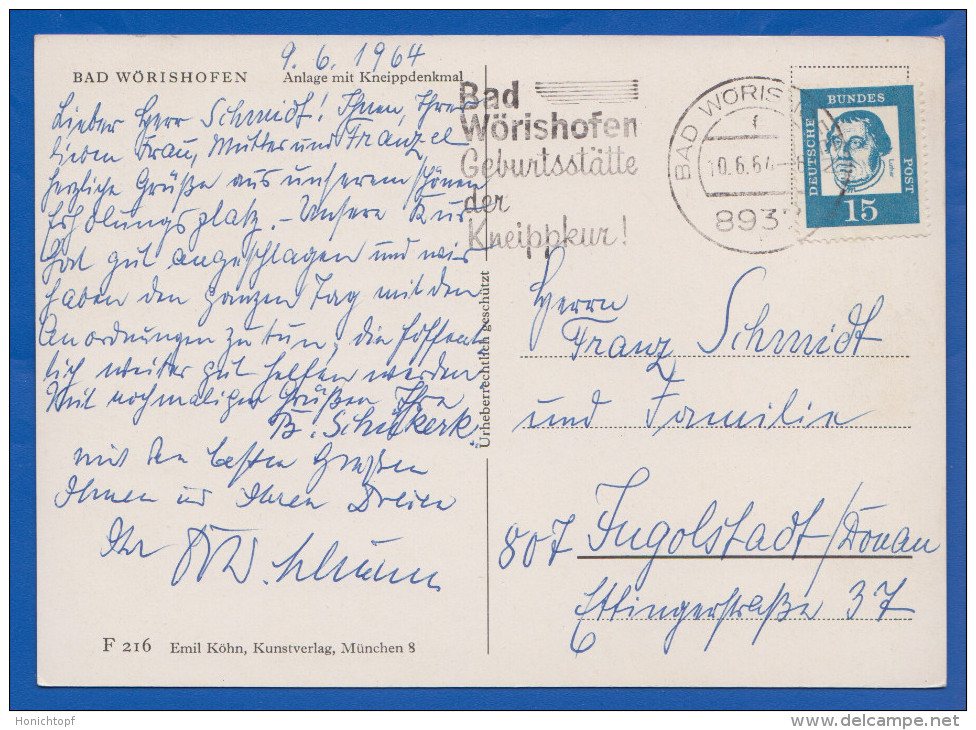 9. 6. 1964
BAD WÖRISHOFEN Anlage mit Kneippdenkmal
Lieber Herr Schmidt! Ihnen, Ihrer
lieben Frau, Mutter und Franzel
herzliche Grüße aus unserem schönen
Erholungsplatz. - Unsere Kur
hat gut angeschlagen und wir
haben den ganzen Tag mit den
Anordnungen zu tun, die hoffent
lich weiter gut helfen werden
Mit nochmaligen Grüßen Ihre
B.
mit den besten Grüßen
Ihnen und Ihren Dreien
Ihr
F 216 Emil Köhn, Kunstverlag, München 8
Urheberrechtlich geschützt
Bad
Wörishofen
Geburtsstätte
der
Kneippkur!
BAD WÖRIS
f
10.6.64
893
DEUTSCHE
BUNDES
POST
Luther
15
Herrn
Franz Schmidt
und Familie
807 Ingolstadt/Donau
Ettingerstraße 37
Honichtopf
www.delcampe.net